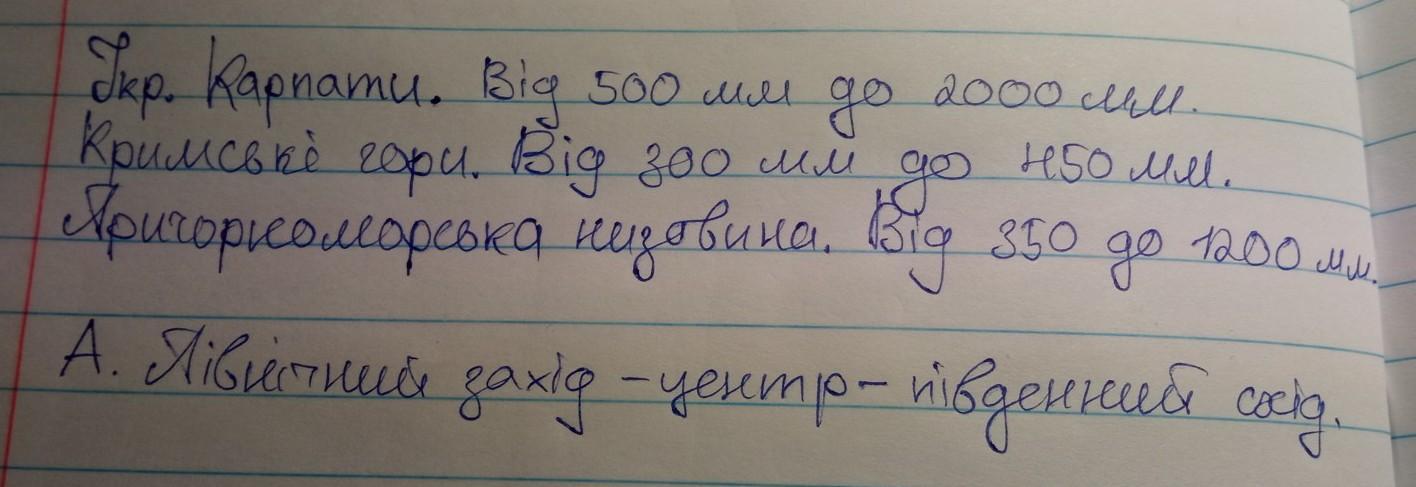 Укр. Карпати. Від 500 мм до 2000 мм.
Кримські гори. Від 300 мм до 450 мм.
Причорноморська низовина. Від 350 до 1200 мм.
А. Північний захід - центр - південний схід.